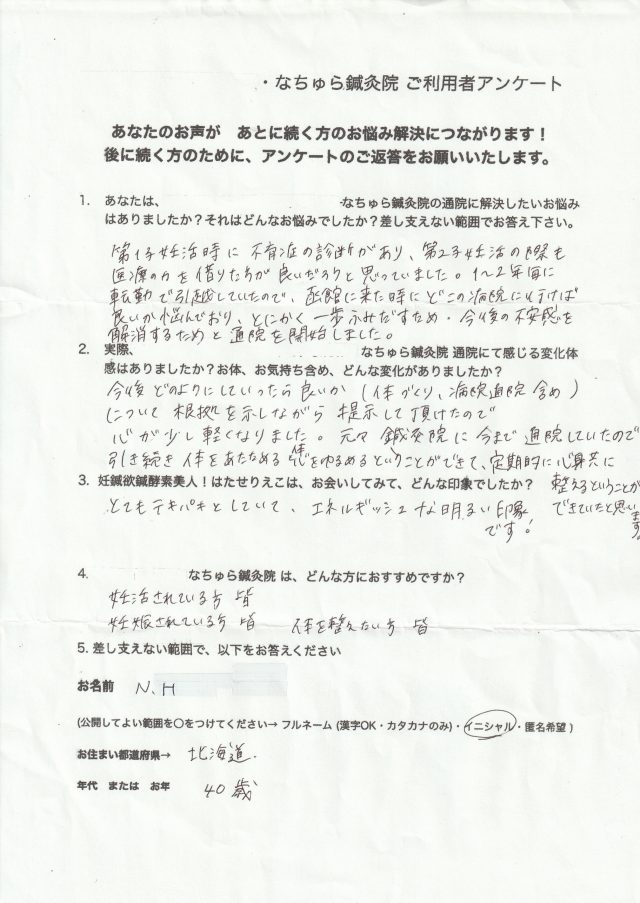 ・なちゅら鍼灸院 ご利用者アンケート
あなたのお声が　あとに続く方のお悩み解決につながります！
後に続く方のために、アンケートのご返答をお願いいたします。
1. あなたは、　なちゅら鍼灸院の通院に解決したいお悩み
はありましたか？それはどんなお悩みでしたか？差し支えない範囲でお答え下さい。
第1子妊活時に不育症の診断があり、第2子妊活の際も
医療の力を借りた方が良いだろうと思っていました。1～2年毎に
転勤で引越していたので、函館に来た時にどこの病院に行けば
良いか悩んでおり、とにかく一歩ふみだすため・今後の不安感を
解消するためと通院を開始しました。
2. 実際、　なちゅら鍼灸院 通院にて感じる変化体
感はありましたか？お体、お気持ち含め、どんな変化がありましたか？
今後どのようにしていったら良いか（体づくり、病院通院含め）
について根拠を示しながら提示して頂けたので
心が少し軽くなりました。元々鍼灸院に今まで通院していたので
引き続き体をあたためる・体 心をゆるめるということができて、定期的に心身共に
整えるということが
できていたと思います。
3. 妊鍼欲鍼酵素美人！はたせりえこは、お会いしてみて、どんな印象でしたか？
とてもテキパキとしていて、エネルギッシュな明るい印象
です！
4. なちゅら鍼灸院 は、どんな方におすすめですか？
妊活されている方 皆
妊娠されている方 皆　体を整えたい方 皆
5. 差し支えない範囲で、以下をお答えください
お名前　N.H
(公開してよい範囲を〇をつけてください→ フルネーム (漢字OK・カタカナのみ)・イニシャル・匿名希望 )
お住まい都道府県→　北海道.
年代　または　お年　40歳